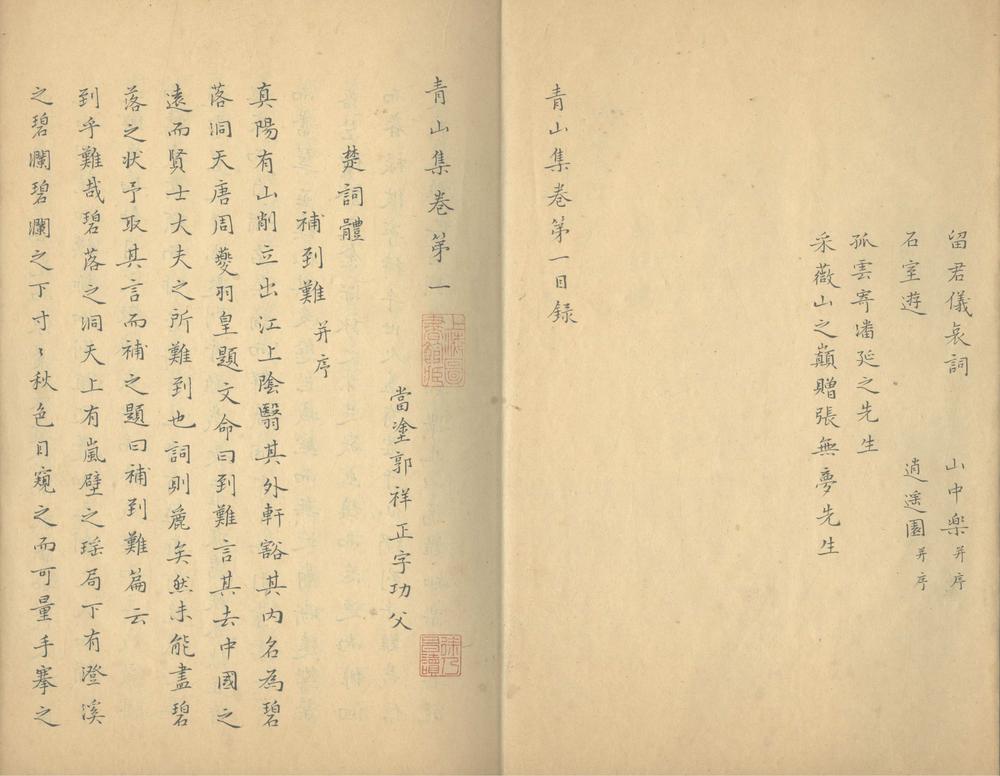 留君儀哀詞 山中樂并序
石室遊 逍遥園并序
孤雲寄潘延之先生
采薇山之巔贈張無夢先生
青山集卷第一目録
青山集卷第一
當塗郭祥正字功父
楚詞體
補到難并序
真陽有山削立出江上陰翳其外軒豁其内名為碧
落洞天唐周夔羽皇題文命曰到難言其去中國之
遠而賢士大夫之所難到也詞則麗矣然未能盡碧
落之状予取其言而補之題曰補到難篇云
到乎難哉碧落之洞天上有嵐壁之瑶局下有澄溪
之碧瀾碧瀾之下寸〻秋色目窺之而可量手搴之